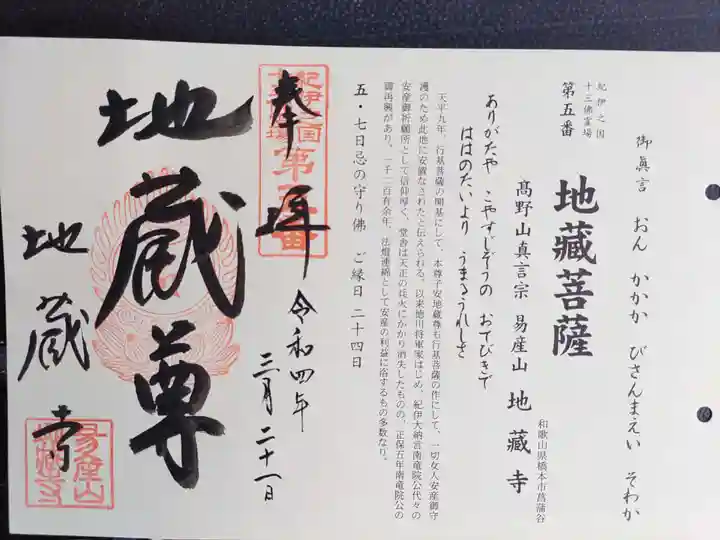 御真言　おん　かかか　びさんまえい　そわか
紀伊之国
十三佛霊場
第五番
地藏菩薩
和歌山県橋本市菖蒲谷
高野山真言宗　易産山　地藏寺
ありがたや　こやすじぞうの　おてびきで
ははのたいより　うまるうれしさ
天平九年、行基菩薩の開基にして、本尊子安地蔵尊も行基菩薩の作にして、一切女人安産御守
護のため此地に安置なされたと伝えられる。以来徳川将軍家はじめ、紀伊大納言南竜院公代々の
安産御祈願所として信仰厚く、堂舎は天正の兵火にかかり消失したものの、正保五年南竜院公の
御再興があり、一千二百有余年、法燈連綿として安産の利益に浴するもの多数なり。
五・七日忌の守り佛　ご縁日　二十四日
奉拝
紀伊之国
十三佛霊場
第五番
令和四年
三月二十一日
地蔵尊
地蔵寺
易産山
地蔵寺